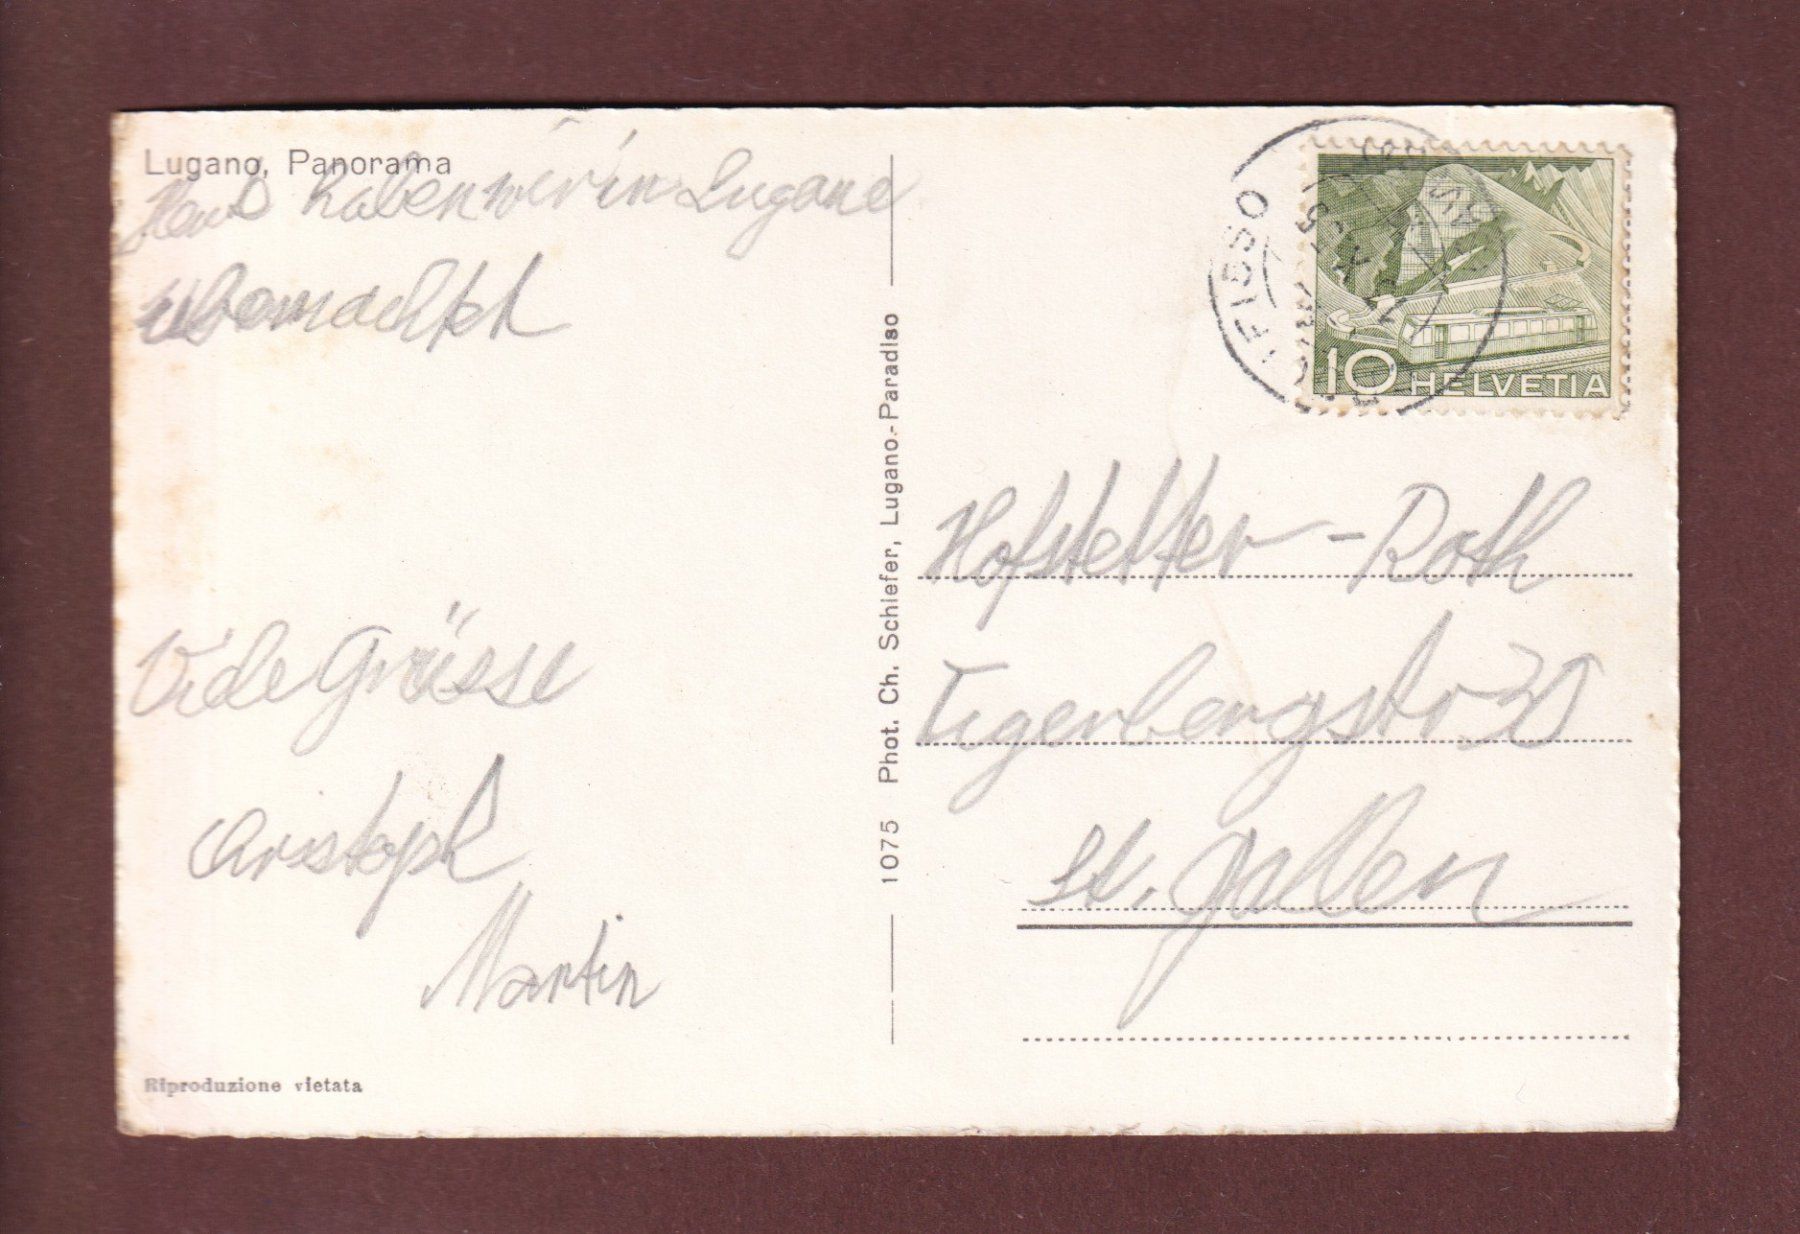 Lugano, Panorama
haben wir in Lugane
Vile Grüsse
Cristoph
Martin
Riproduzione vietata
1075 Phot. Ch. Schiefer, Lugano-Paradiso
FIESO
10 HELVETIA
Hofstetter - Roth
Tigerbergstr
St. Gallen